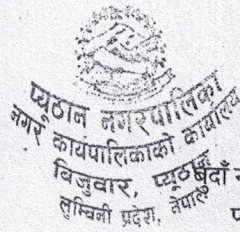 प्यूठान नगरपालिका
नगर कार्यपालिकाको कार्यालय
बिजुवार, प्यूठान
लुम्बिनी प्रदेश, नेपाल
बुदाँ